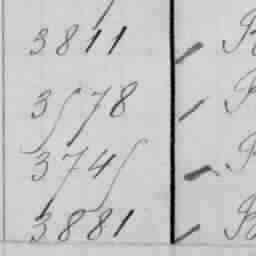 3811
3578
3745
3881